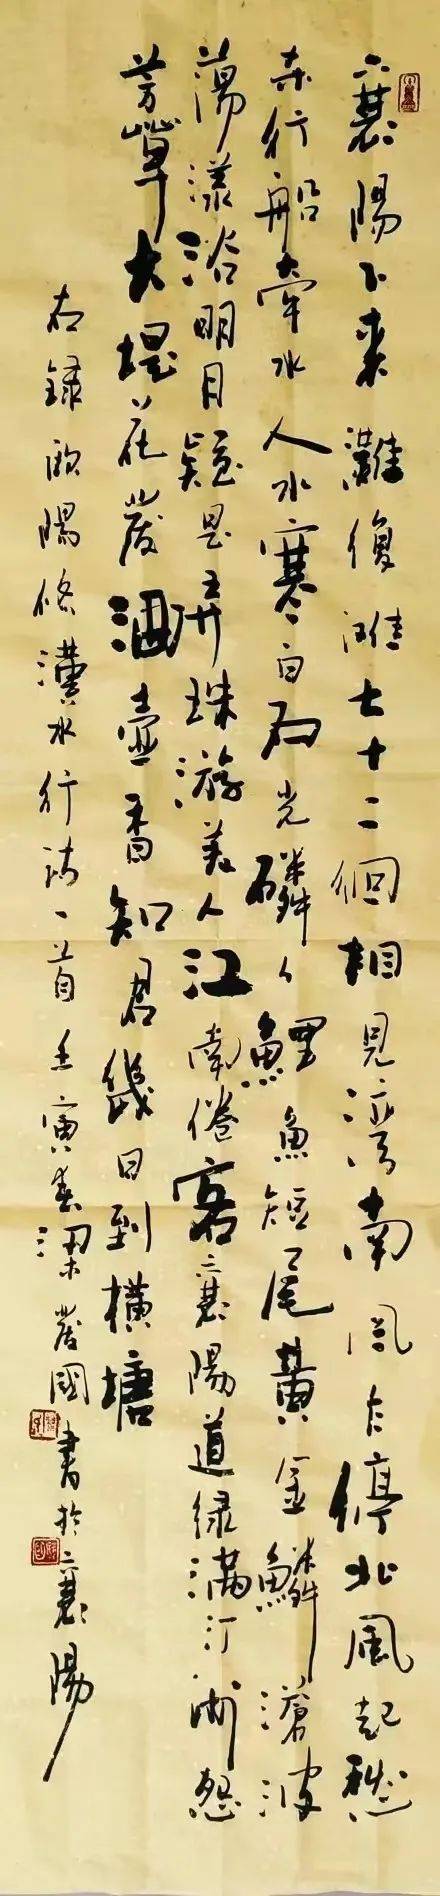 襄陽下來灘復灘七十二個相見灣南風乍停北風起愁
杀行船牽水人水寒白石光磷々鯉魚短尾黃金鱗滄波
蕩漾浴明月疑是弄珠游美人江南倦客襄陽道綠滿汀洲怨
芳草大堤花發酒壺香知君幾日到橫塘
右錄歐陽修漢水行詩一首壬寅春梁發國書於襄陽